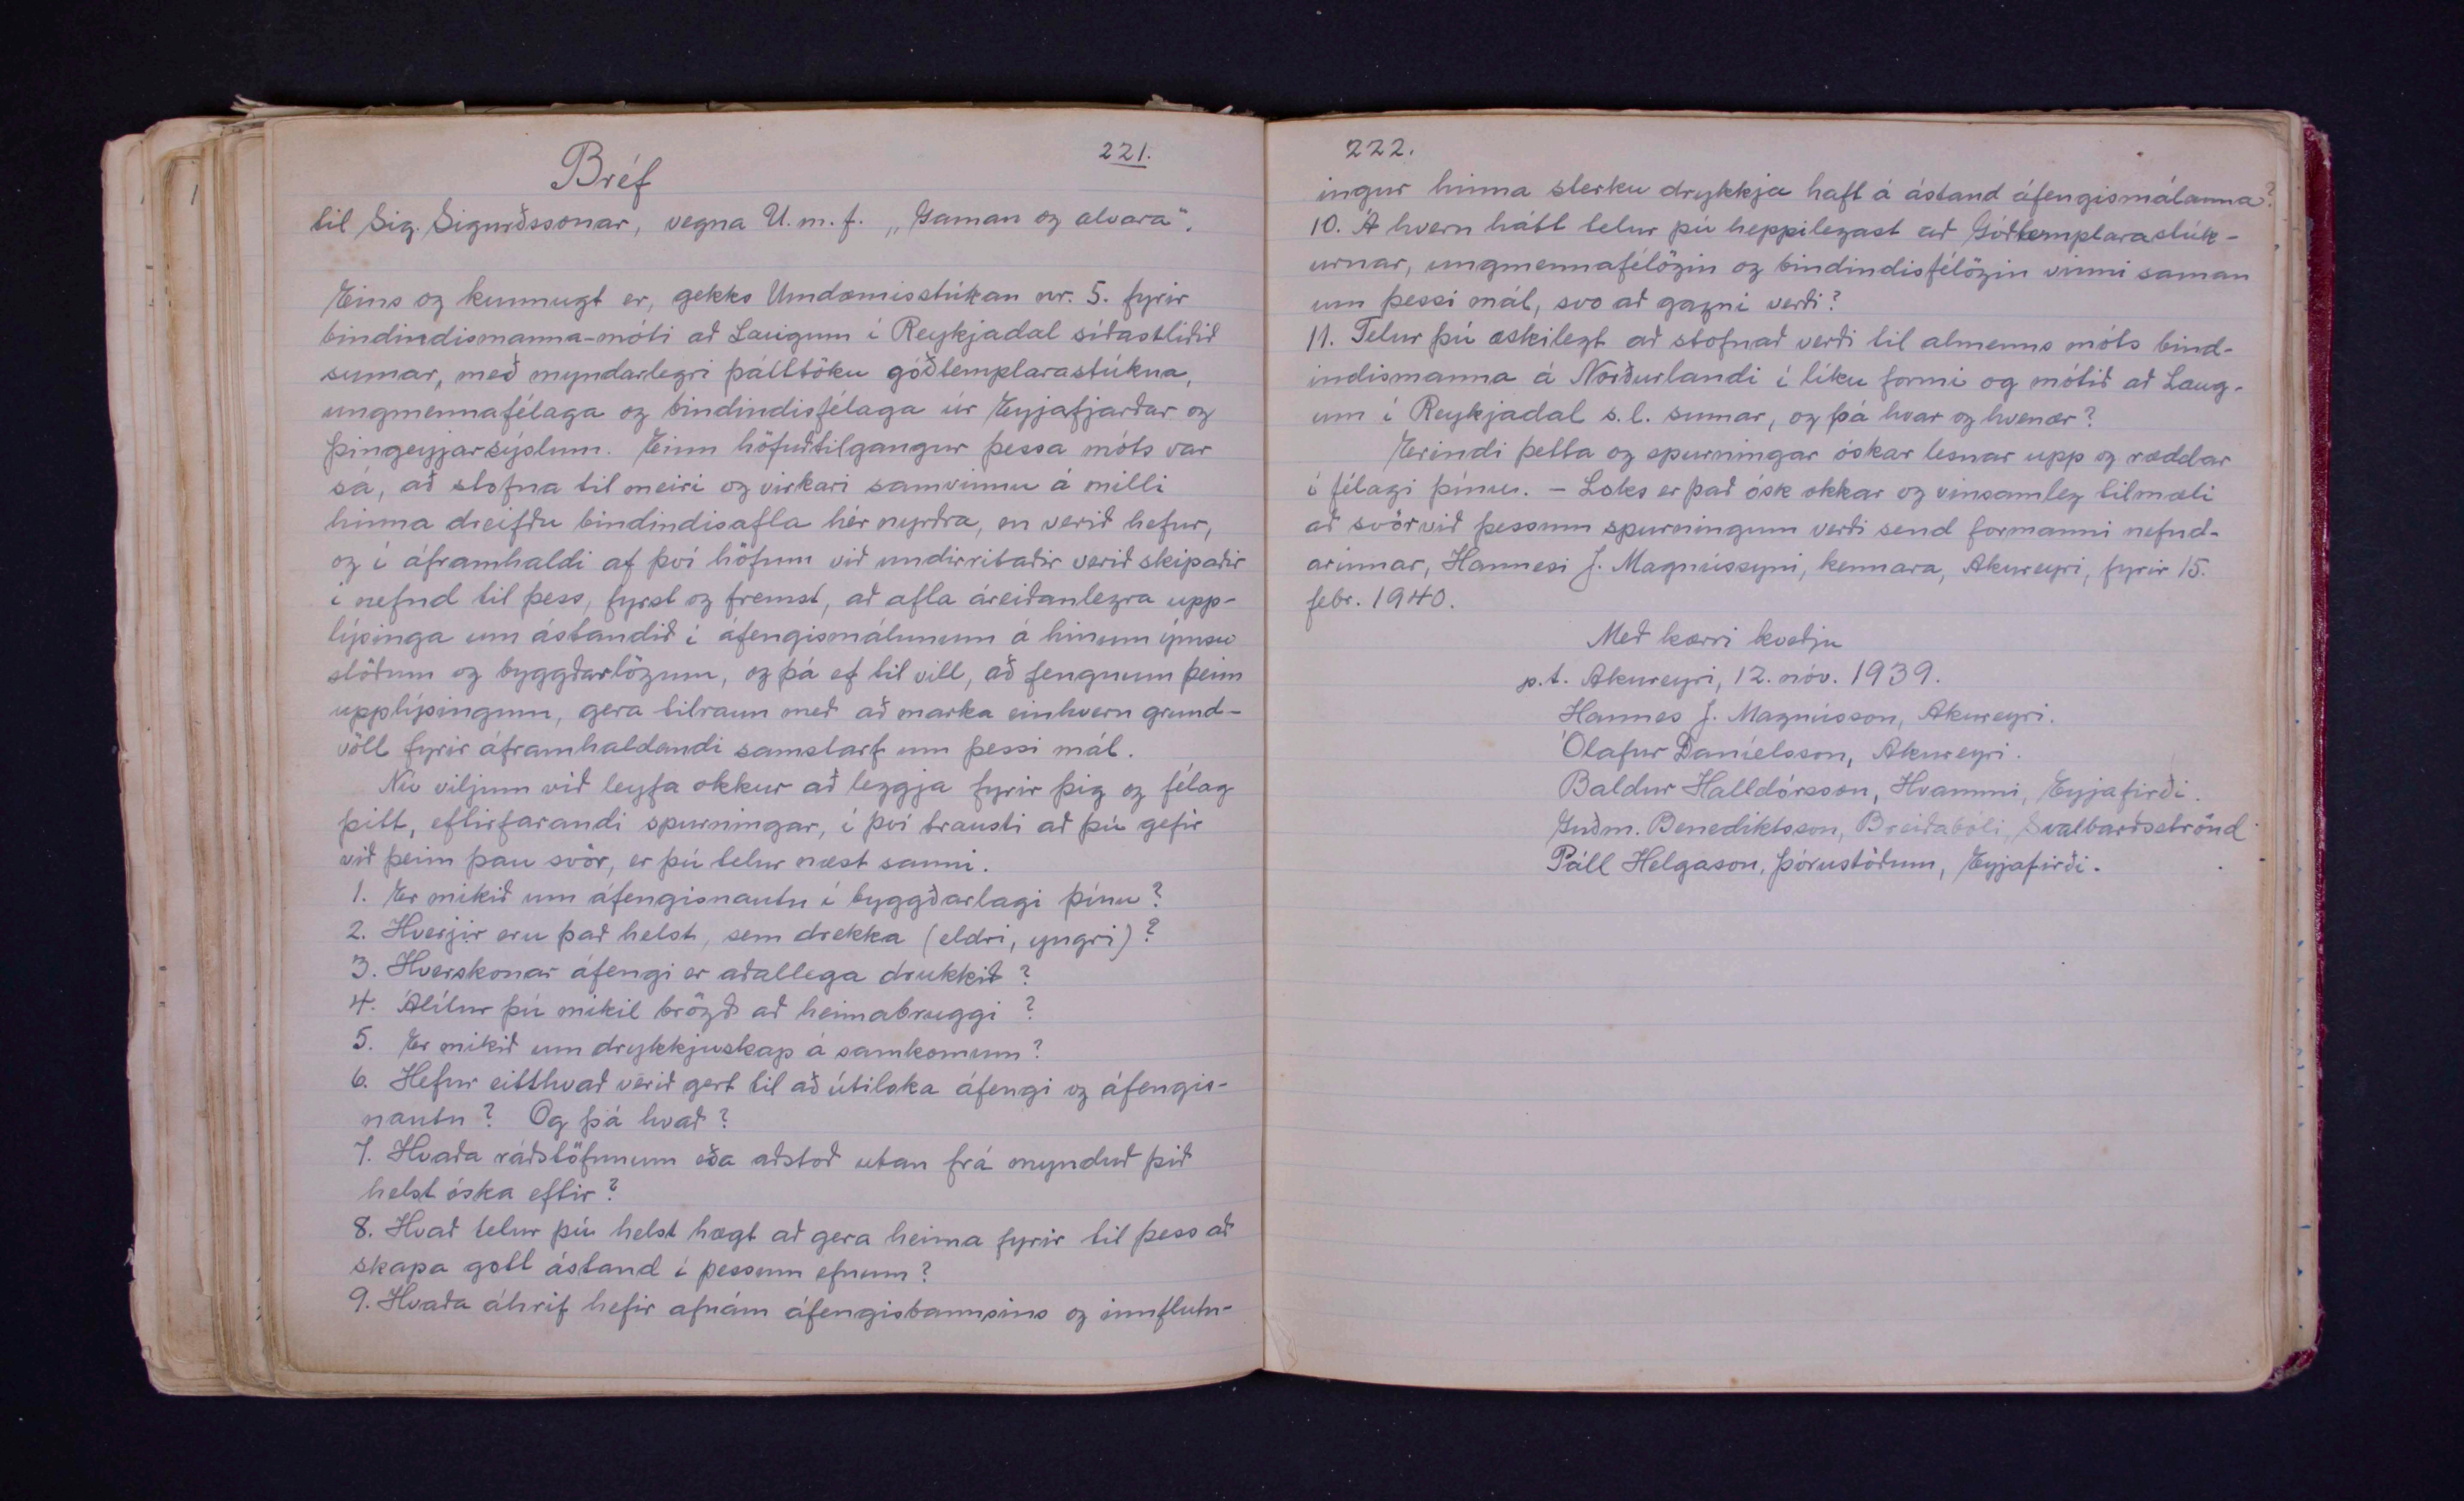 221.
Bréf
til Sig. Sigurðssonar, vegna U.m.f. „Gaman og alvara“.
Eins og kunnugt er, gekks Umdæmisstúkan nr. 5. fyrir
bindindismanna-móti að Laugum í Reykjadal síðastliðið
sumar, með myndarlegri þátttöku góðtemplarastúkna,
ungmennafélaga og bindindisfélaga úr Eyjafjarðar og
Þingeyjarsýslum. Einn höfuðtilgangur þessa móts var
sá, að stofna til meiri og virkari samvinnu á milli
hinna dreifðu bindindisafla hér nyrðra, en verið hefur,
og í áframhaldi af því höfum við undirritaðir verið skipaðir
í nefnd til þess, fyrst og fremst, að afla áreiðanlegra upp-
lýsinga um ástandið í áfengismálunum á hinum ýmsu
stöðum og byggðarlögum, og þá ef til vill, að fengnum þeim
upplýsingum, gera tilraun með að marka einhvern grund-
völl fyrir áframhaldandi samstarf um þessi mál.
Nú viljum við leyfa okkur að leggja fyrir þig og félag
þitt, eftirfarandi spurningar, í því trausti að þú gefir
við þeim þau svör, er þú telur næst sanni.
1. Er mikið um áfengisnautn í byggðarlagi þínu?
2. Hverjir eru það helst, sem drekka (eldri, yngri)?
3. Hverskonar áfengi er aðallega drukkið?
4. Álítur þú mikil brögð að heimabruggi?
5. Er mikið um drykkjuskap á samkomum?
6. Hefur eitthvað verið gert til að útiloka áfengi og áfengis-
nautn? Og þá hvað?
7. Hvaða ráðstöfunum eða aðstoð utan frá mynduð þið
helst óska eftir?
8. Hvað telur þú helst hægt að gera heima fyrir til þess að
skapa gott ástand í þessum efnum?
9. Hvaða áhrif hefir afnám áfengisbannsins og innflutn-
222.
ingur hinna sterku drykkja haft á ástand áfengismálanna?
10. Á hvern hátt telur þú heppilegast að Góðtemplarastúk-
urnar, ungmennafélögin og bindindisfélögin vinni saman
um þessi mál, svo að gagni verði?
11. Telur þú æskilegt að stofnað verði til almenns móts bind-
indismanna á Norðurlandi í líku formi og mótið að Laug-
um í Reykjadal s.l. sumar, og þá hvar og hvenær?
Erindi þetta og spurningar óskar lesnar upp og ræddar
í félagi þínu. - Loks er það ósk okkar og vinsamleg tilmæli
að svör við þessum spurningum verði send formanni nefnd-
arinnar, Hannesi J. Magnússyni, kennara, Akureyri, fyrir 15.
febr. 1940.
Með kærri kveðju
p.t. Akureyri, 12. nóv. 1939.
Hannes J. Magnússon, Akureyri.
Ólafur Daníelsson, Akureyri.
Baldur Halldórsson, Hvammi, Eyjafirði.
Guðm. Benediktsson, Breiðabóli, Svalbarðsströnd
Páll Helgason, Þórustöðum, Eyjafirði.